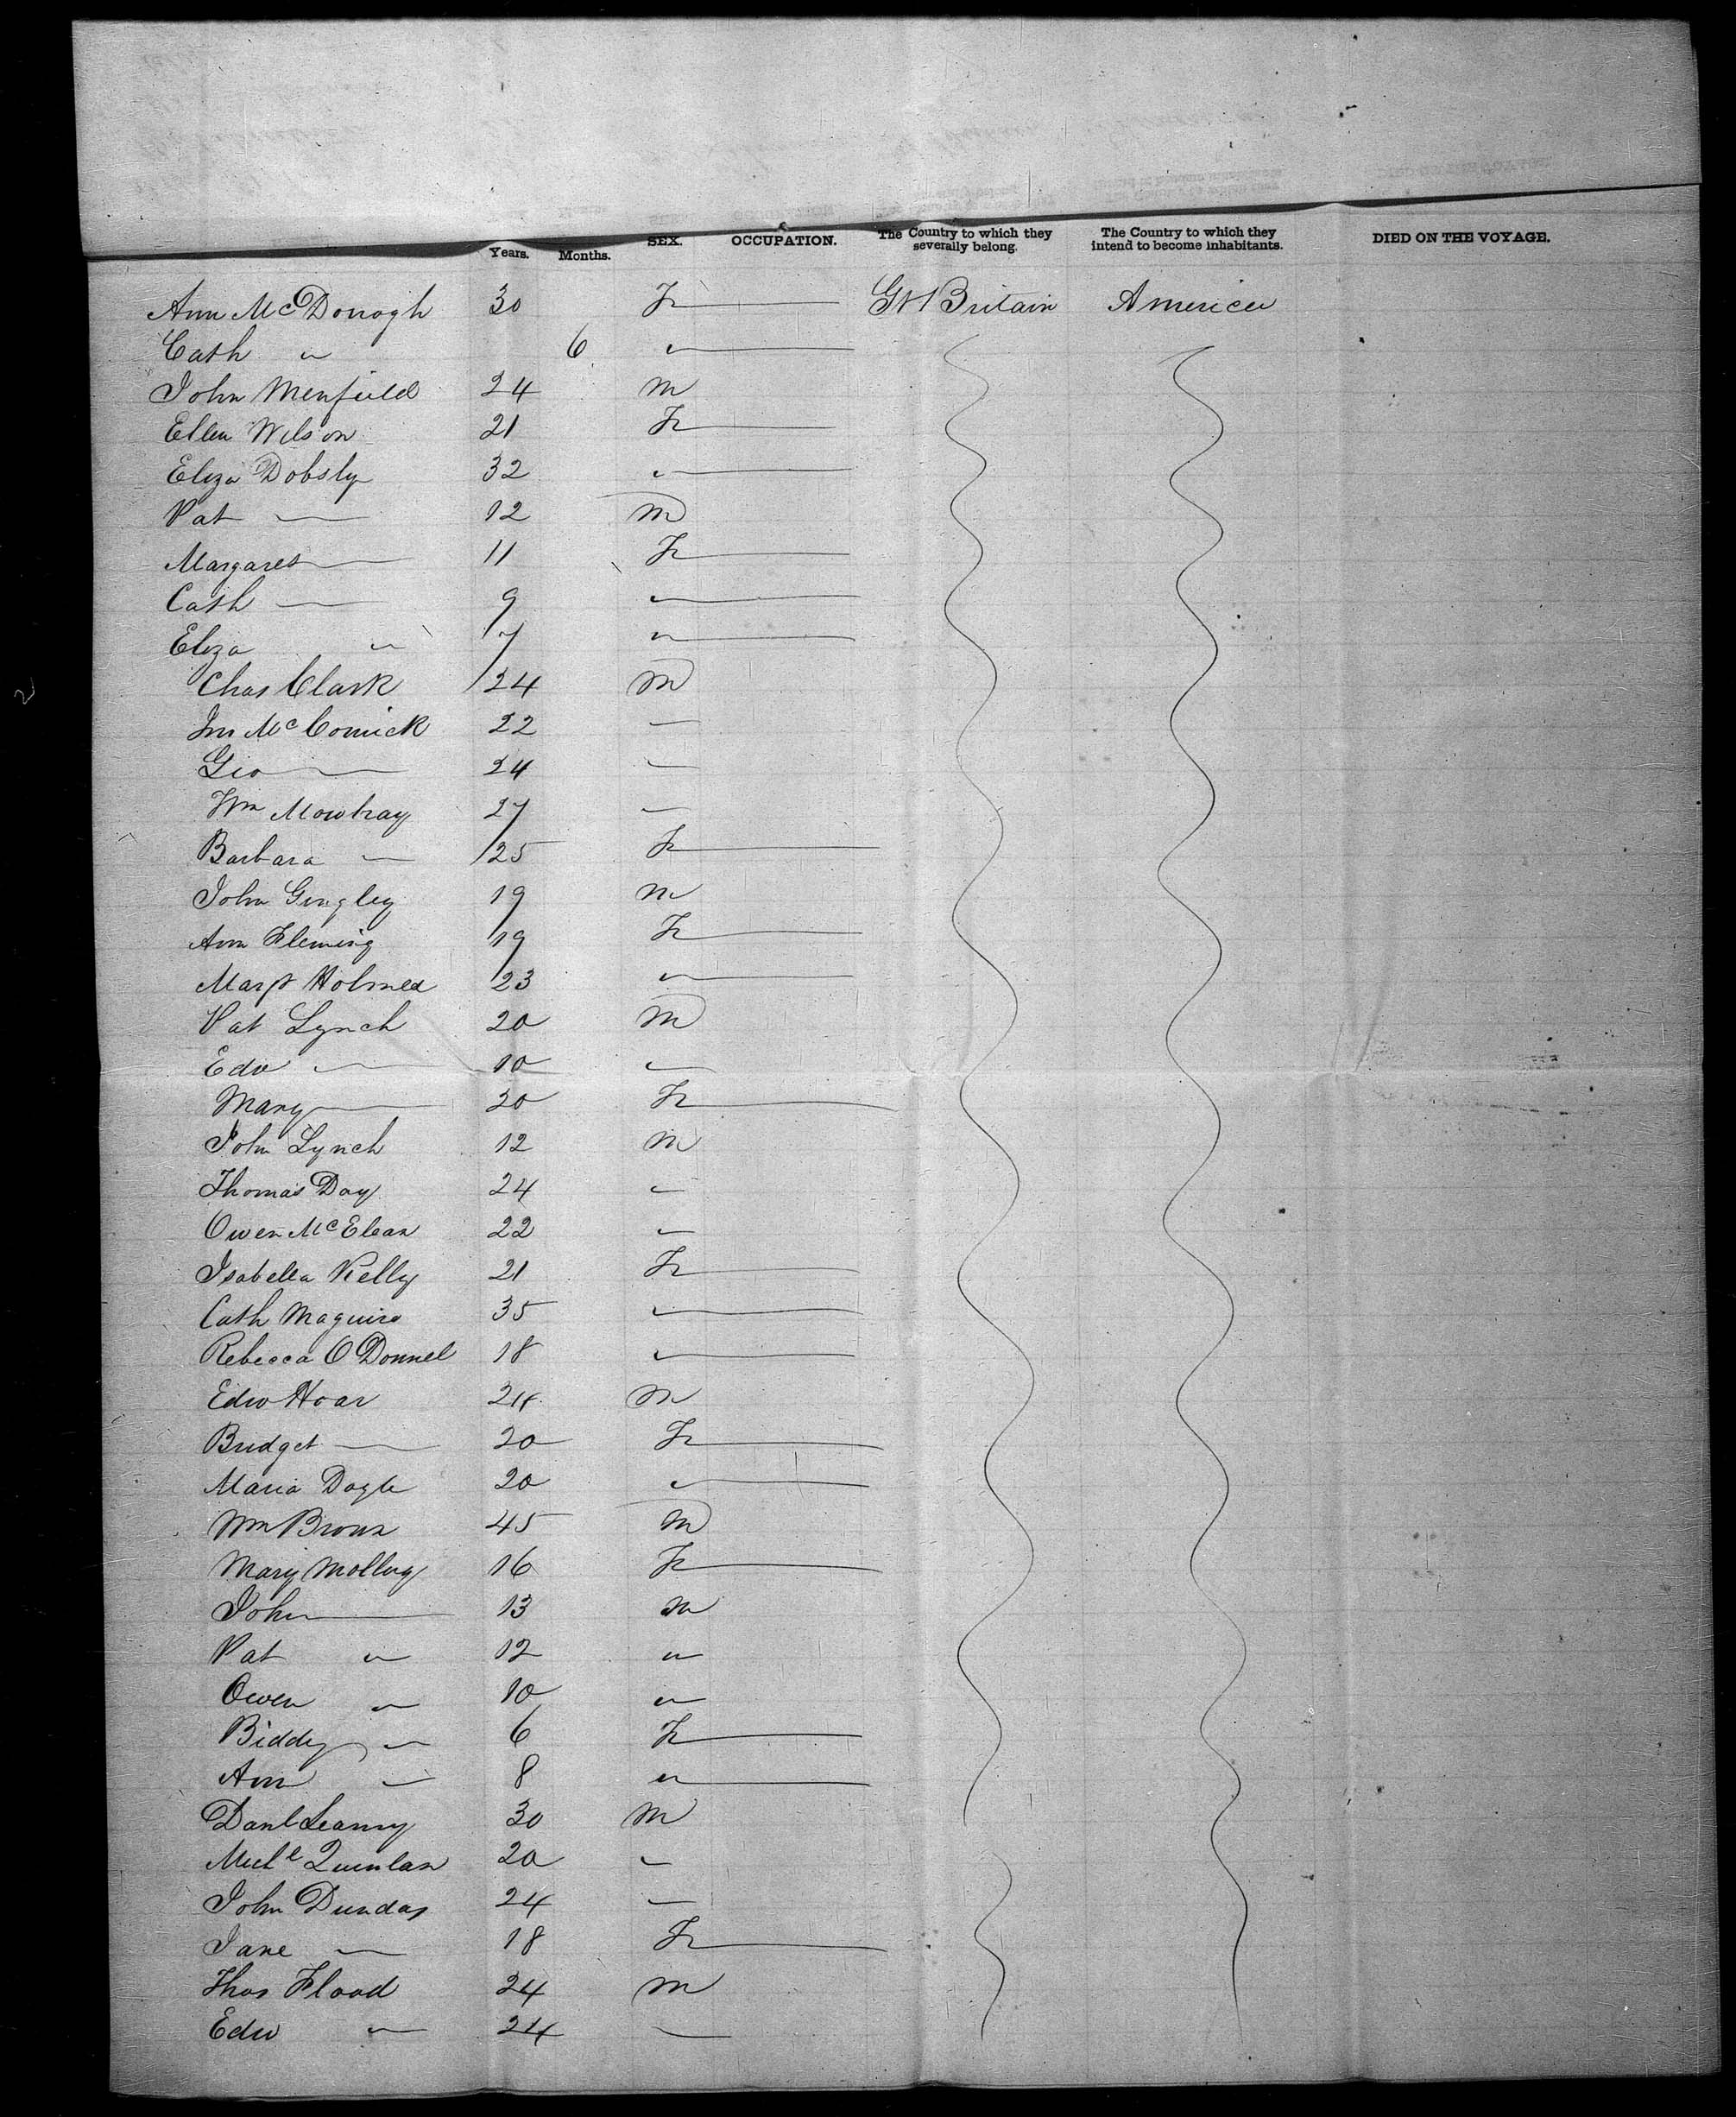 Years. Months. SEX. OCCUPATION. The Country to which they severally belong. The Country to which they intend to become inhabitants. DIED ON THE VOYAGE.
Ann McDonogh 30 F — Gt Britain America
Cath " 6 " —
John Menfield 24 M
Ellen Wilson 21 F —
Eliza Dobsly 32 " —
Pat — 12 M
Margaret — 11 F —
Cath — 9 " —
Eliza " 7 " —
Chas Clark 24 M
Jno McComick 22 "
Geo — 24 "
Wm Mowbray 27 "
Barbara — 25 F —
John Gingley 19 M
Ann Fleming 19 F —
Margt Holmes 23 " —
Pat Lynch 20 M
Edw — 10 "
Mary — 20 F —
John Lynch 12 M
Thomas Day 24 "
Owen McElean 22 "
Isabella Kelly 21 F —
Cath Maguire 35 " —
Rebecca O Donnel 18 " —
Edw Hoar 24 M
Bridget — 20 F —
Maria Dogle 20 " —
Wm Broun 45 M
Mary Molloy 16 F —
John — 13 M
Pat " 12 "
Owen " 10 "
Biddy " 6 F —
Ann " 8 " —
Danl Leanny 30 M
Michl Quinlan 20 "
John Dundas 24 "
Jane — 18 F —
Thos Flood 24 M
Edw " 24 —
2